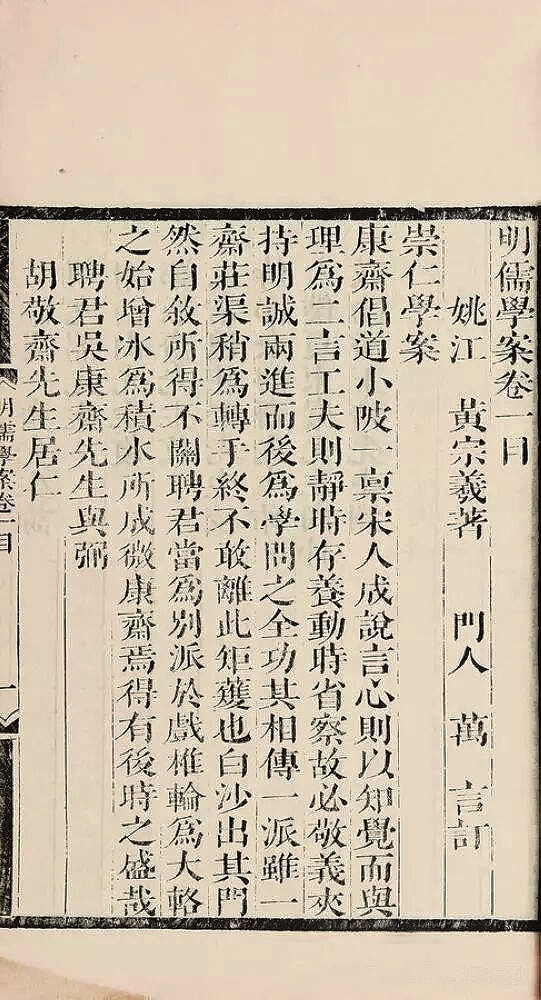 明儒學案卷一目
姚江　黃宗羲著　門人　萬　言訂
崇仁學案
康齋倡道小陂一稟宋人成說言心則以知覺而與
理爲二言工夫則靜時存養動時省察故必敬義夾
持明誠兩進而後爲學問之全功其相傳一派雖一
齋莊渠稍爲轉手終不敢離此矩矱也白沙出其門
然自敘所得不關聘君當爲別派於戲椎輪爲大輅
之始增冰爲積水所成微康齋焉得有後時之盛哉
聘君吳康齋先生與弼
胡敬齋先生居仁
明儒學案卷一目
一